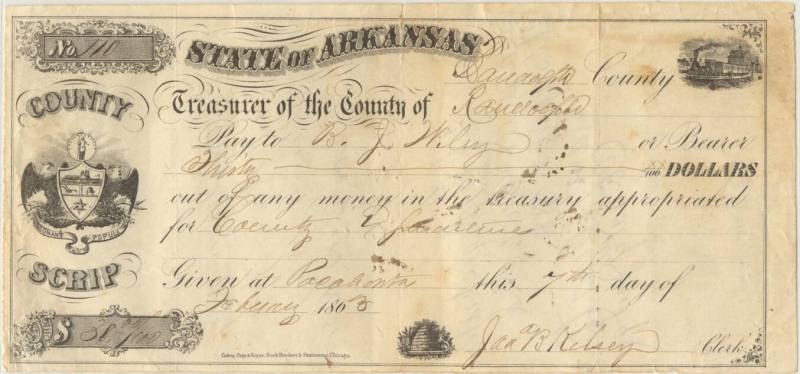 No 110
STATE OF ARKANSAS
Randolph County
COUNTY
Treasurer of the County of Randolph
Pay to B. J. Wiley or Bearer
Thirty 100 DOLLARS
out of any money in the treasury appropriated
for County
REGNANT POPULI
SCRIP
Given at Pocahontas this 7th day of
February 1863
$ 38
Culver, Page & Hoyne, Book Binders & Stationers, Chicago.
Jas. B Kelsey Clerk